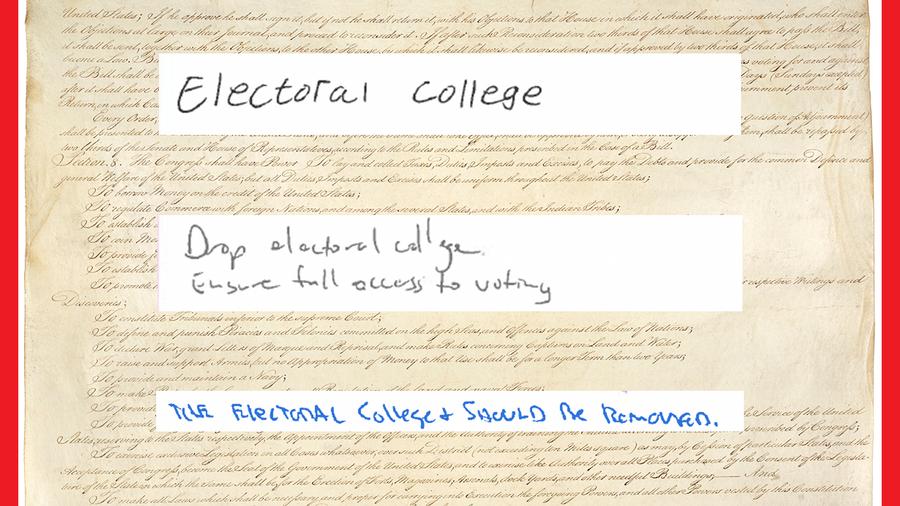 United States; If he approve he shall sign it, but if not he shall return it, with his Objections to that House in which it shall have originated, who shall enter
the Objections at large on their Journal, and proceed to reconsider it. If after such Reconsideration two thirds of that House shall agree to pass the Bill,
it shall be sent, together with the Objections, to the other House, by which it shall likewise be reconsidered, and if approved by two thirds of that House, it shall
become a Law.
the Bill shall be
after it shall have
Return, in which
Electoral College
Every Order,
shall be presented to
two thirds of the Senate and House of Representatives, according to the Rules and Limitations prescribed in the Case of a Bill.
Section. 8. The Congress shall have Power To lay and collect Taxes, Duties, Imposts and Excises, to pay the Debts and provide for the common Defence and
general Welfare of the United States; but all Duties, Imposts and Excises shall be uniform throughout the United States;
To borrow Money on the credit of the United States;
To regulate Commerce with foreign Nations, and among the several States, and with the Indian Tribes;
To establish
To coin
To provide
To establish
To promote
Drop electoral college.
Ensure full access to voting
respective Writings and
Discoveries;
To constitute Tribunals inferior to the supreme Court;
To define and punish Piracies and Felonies committed on the high Seas, and Offences against the Law of Nations;
To declare War, grant Letters of Marque and Reprisal, and make Rules concerning Captures on Land and Water;
To raise and support Armies, but no Appropriation of Money to that Use shall be for a longer Term than two Years;
To provide and maintain a Navy;
To make
To provide
THE ELECTORAL College SHOULD Be Removed.
Service of the United
States, reserving to the States respectively, the Appointment of the Officers, and the Authority of training the
prescribed by Congress;
To exercise exclusive Legislation in all Cases whatsoever, over such District (not exceeding ten Miles square) as may, by Cession of particular States, and the
Acceptance of Congress, become the Seat of the Government of the United States, and to exercise like Authority over all Places purchased by the Consent of the Legisla-
ture of the State in which the Same shall be, for the Erection of Forts, Magazines, Arsenals, dock-Yards, and other needful Buildings; And
To make all Laws which shall be necessary and proper for carrying into Execution the foregoing Powers, and all other Powers vested by this Constitution